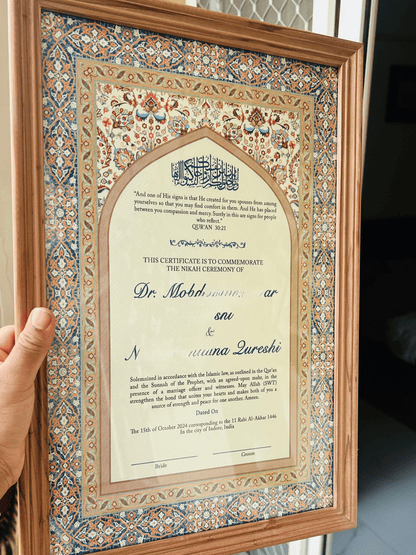 "And one of His signs is that He created for you spouses from among
yourselves so that you may find comfort in them. And He has placed
between you compassion and mercy. Surely in this are signs for people
who reflect."
QUR'AN 30:21
THIS CERTIFICATE IS TO COMMEMORATE
THE NIKAH CEREMONY OF
Dr.
&
Qureshi
Solemnized in accordance with the Islamic law, as outlined in the Qur'an
and the Sunnah of the Prophet, with an agreed-upon mahr, in the
presence of a marriage officer and witnesses. May Allah (SWT)
strengthen the bond that unites your hearts and makes both of you a
source of strength and peace for one another. Ameen.
Dated On
The 15th of October 2024 corresponding to the 11 Rabi Al-Akhar 1446
In the city of Indore, India
Bride
Groom